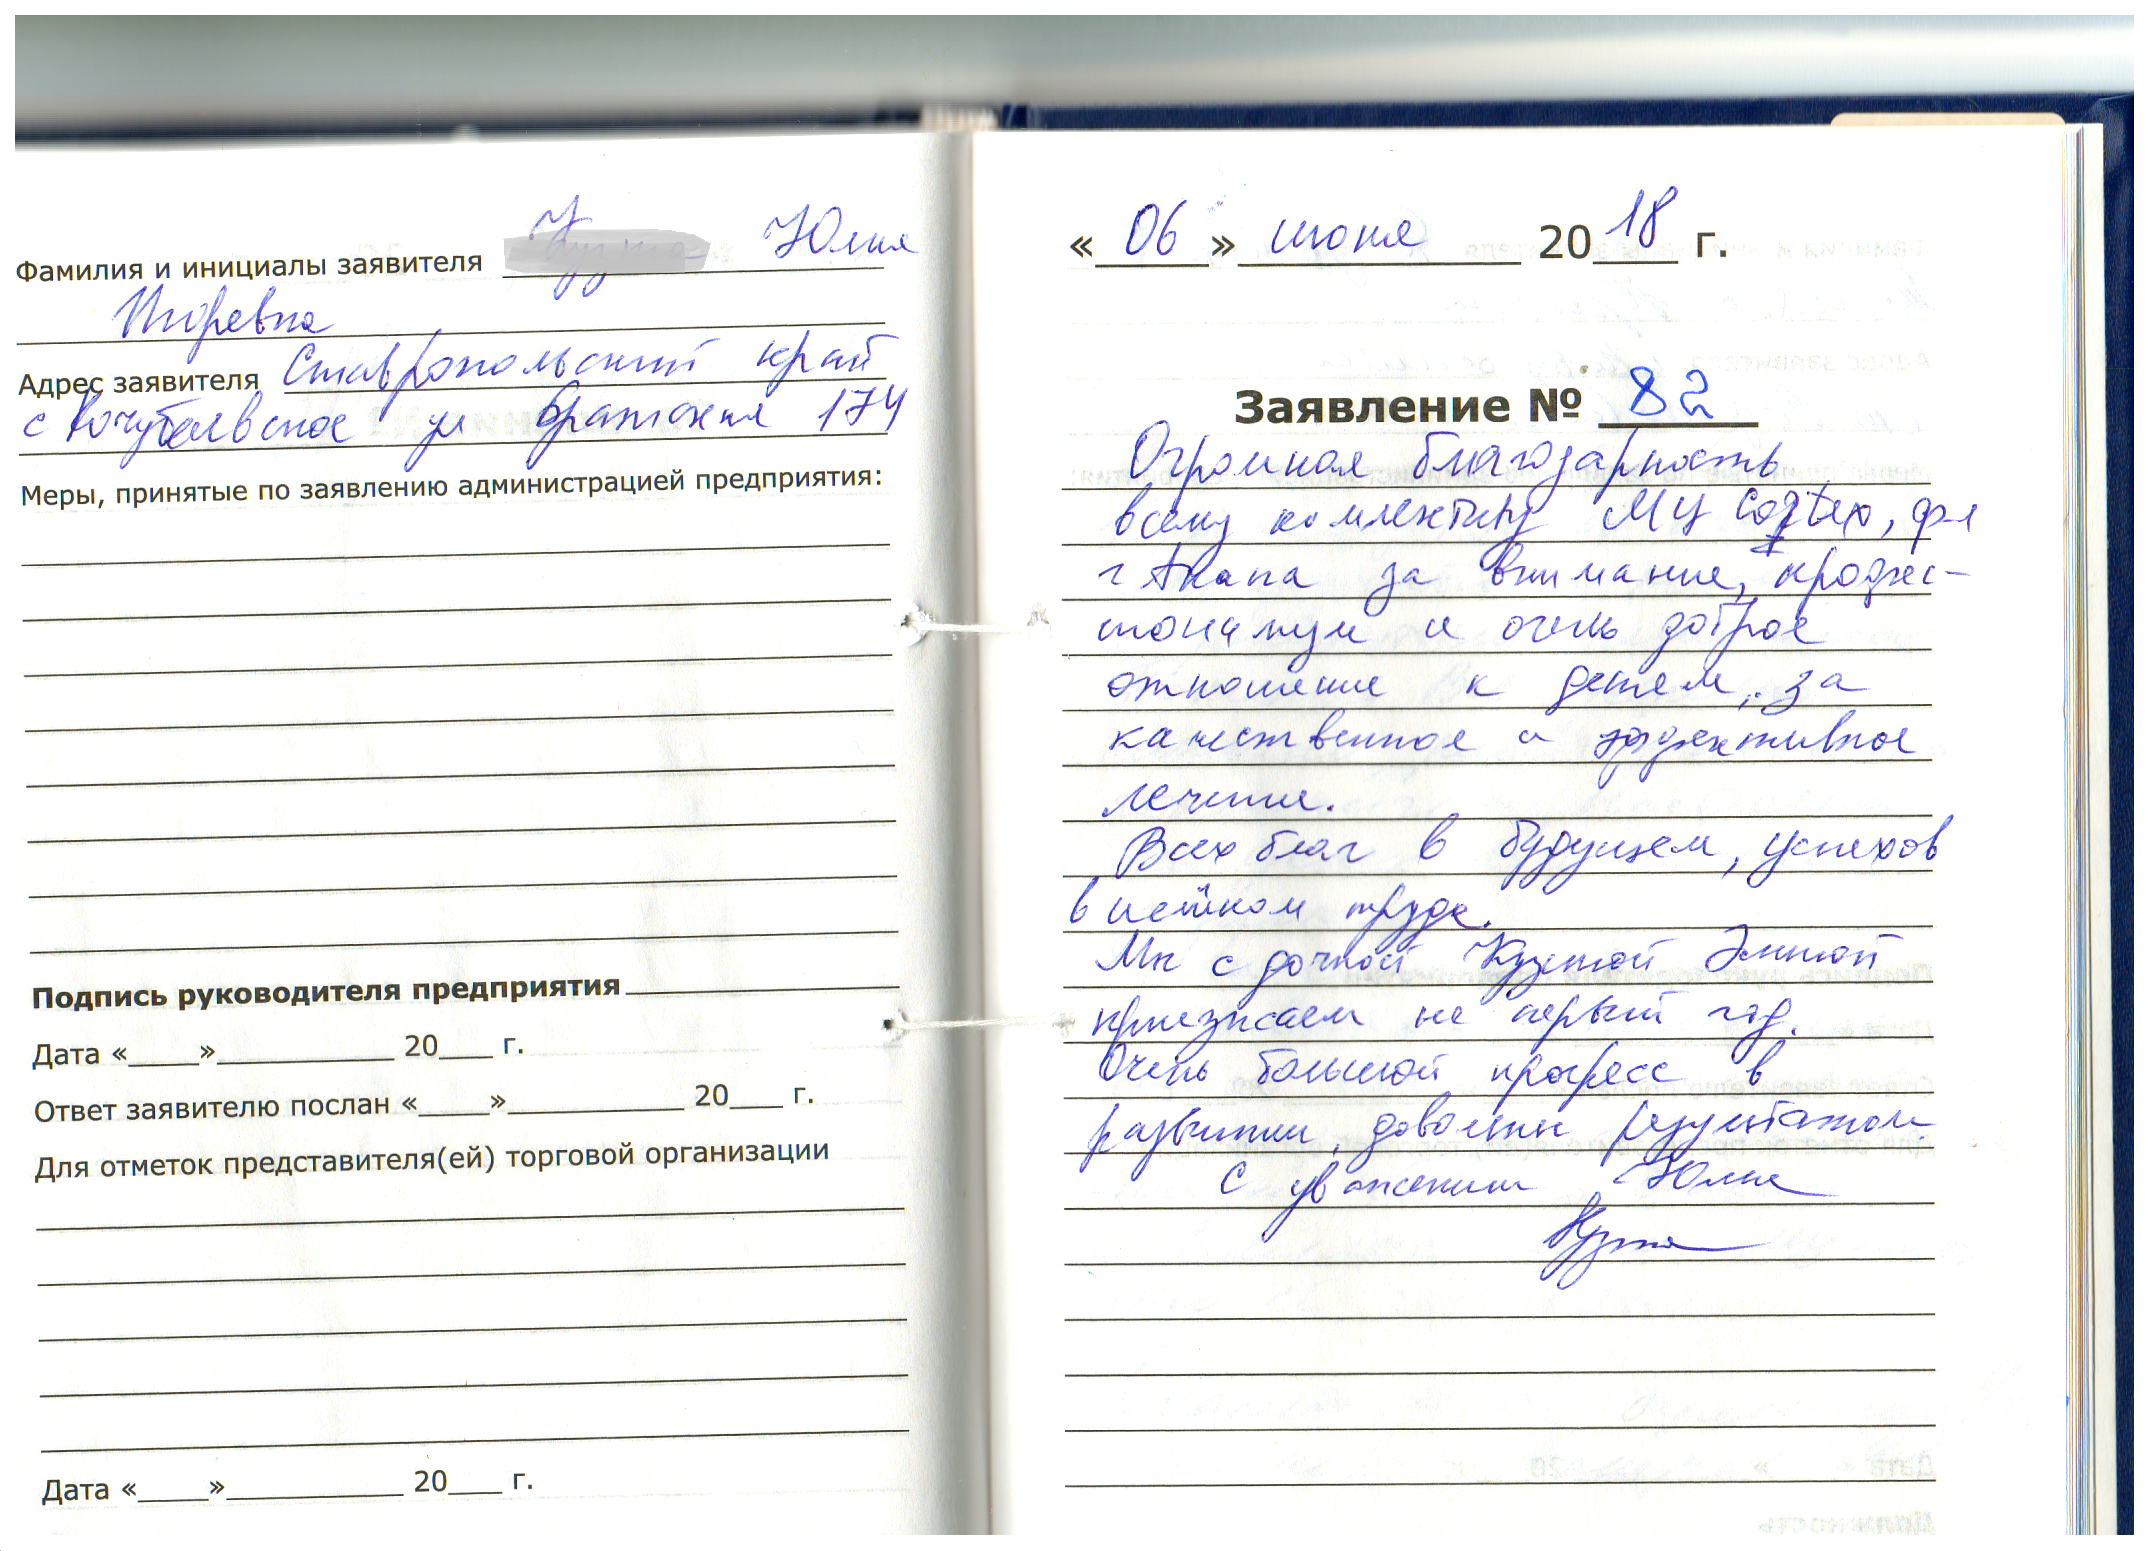 Фамилия и инициалы заявителя Юлия
Игоревна
Адрес заявителя Ставропольский край
с Кочубеевское ул Братская 174
Меры, принятые по заявлению администрацией предприятия:
Подпись руководителя предприятия
Дата «_____»____________ 20____ г.
Ответ заявителю послан «_____»____________ 20____ г.
Для отметок представителя(ей) торговой организации
Дата «_____»____________ 20____ г.
« 06 » июня 20 18 г.
Заявление № 82
Огромная благодарность
всему коллективу МЦ Cortex, ф-л
г Анапа за внимание, профес-
ионализм и очень доброе
отношение к детям, за
качественное и эффективное
лечение.
Всех благ в будущем, успехов
в нелёгком труде.
Мы с дочкой
приезжаем не первый год.
Очень большой прогресс в
развитии, довольны результатом
С уважением Юлия